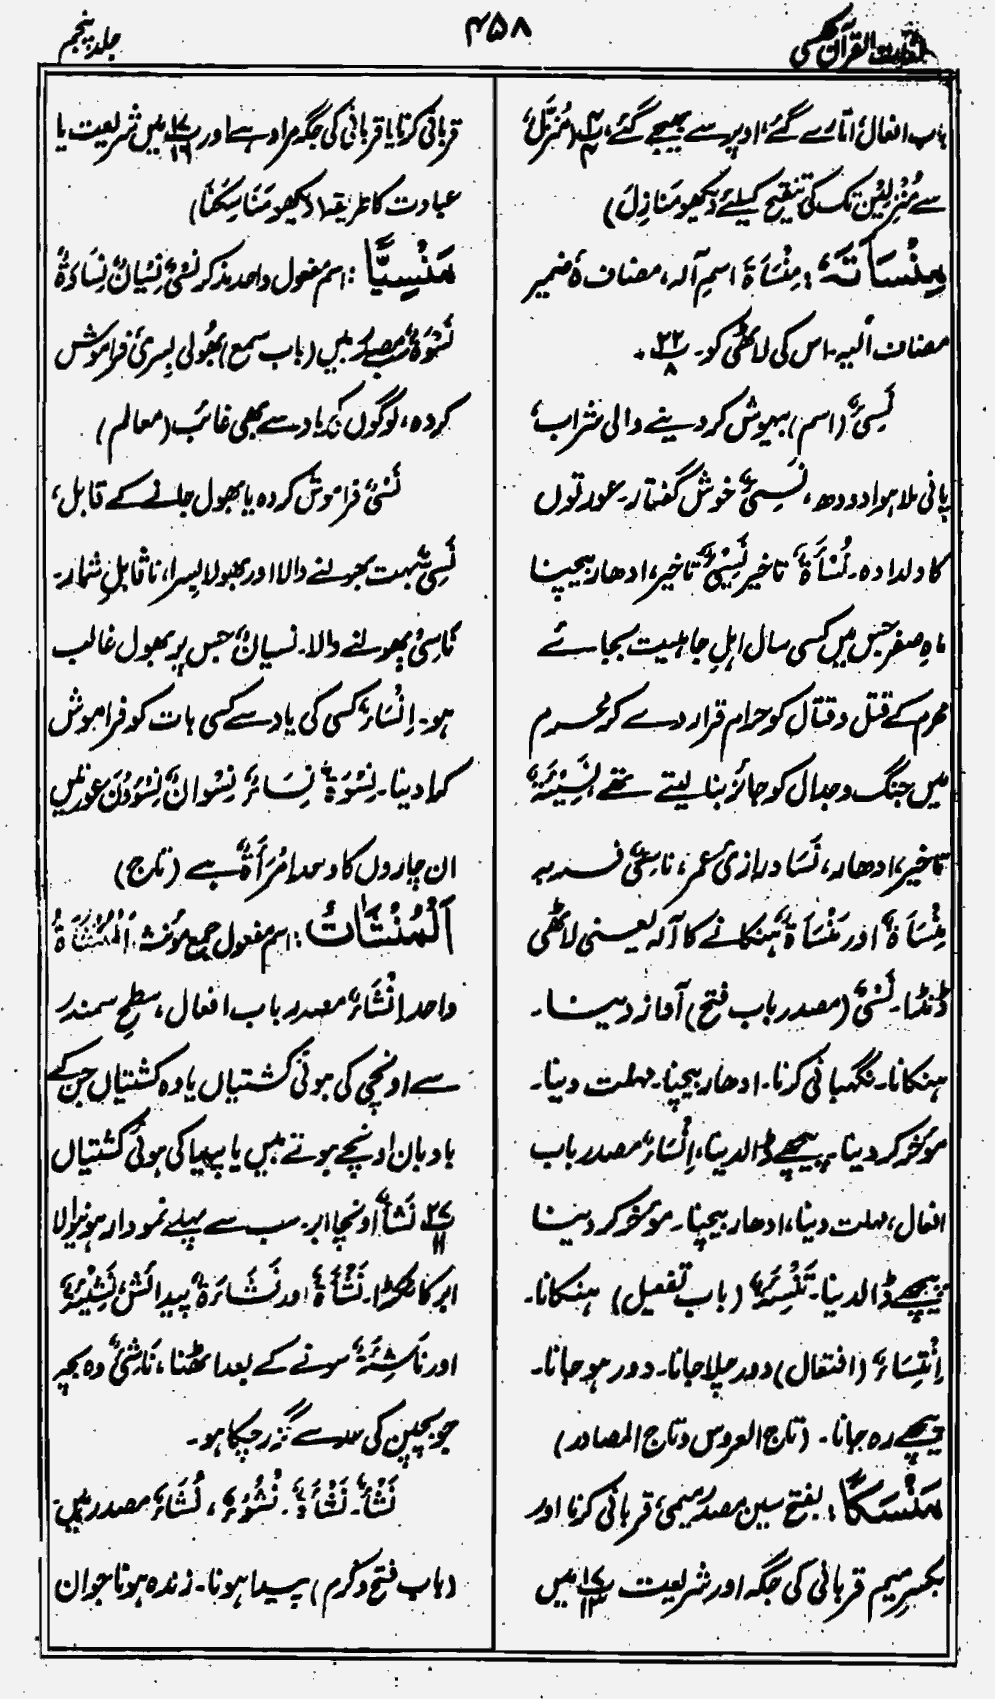 لغات القرآن
۴۵۸
جلد پنجم
باب افعال، اتارے گئے، اوپر سے بھیجے گئے، (مُنَزَّلٌ،
سے مُنْزِلِیْن تک کی تنقیح کیلئے دیکھو مَنَازِلَ)
مِنْسَاَتَہٗ: مِنْسَاَةَ اسمِ آلہ، مضاف ہٗ ضمیر
مضاف الیہ۔ اس کی لاٹھی کو۔ ۲۲/۸
نَسِئٌ (اسم) بیہوش کر دینے والی شراب،
پانی ملا ہوا دودھ، نَسِئٌ خوش گفتار۔ عورتوں
کا دلدادہ۔ نُسْأَةٌ تاخیر نَسِیْئٌ تاخیر، ادھار بیچنا
ماہِ صفر جس میں کسی سال اہلِ جاہلیت بجائے
محرم کے قتل و قتال کو حرام قرار دے کر محرم
میں جنگ و جدال کو جائز بنا لیتے تھے نَسِیْئَةٌ
تاخیر، ادھار، نَسَاء درازیٔ عمر، نَاسِئٌ فربہ
مِنْسَأَةٌ اور مَنْسَأَةٌ ہنکانے کا آلہ یعنی لاٹھی
ڈنڈا۔ نَسْئٌ (مصدر باب فتح) آواز دینا۔
ہنکانا۔ نگہبانی کرنا۔ ادھار بیچنا۔ مہلت دینا۔
مؤخر کر دینا۔ پیچھے ڈالدینا، اِنْسَاءٌ مصدر باب
افعال، مہلت دینا، ادھار بیچنا۔ مؤخر کر دینا
پیچھے ڈالدینا۔ تَنْسِئَةٌ (باب تفعیل) ہنکانا۔
اِنْتِسَاءٌ (افتعال) دور چلا جانا۔ دور ہو جانا۔
پیچھے رہ جانا۔ (تاج العروس و تاج المصادر)
مَنْسَكًا: بفتح سین مصدر میمی، قربانی کرنا اور
بکسر میم قربانی کی جگہ اور شریعت ۱۷/۱۲ میں
قربانی کرنا یا قربانی کی جگہ مراد ہے اور ۱۷/۱۶ میں شریعت یا
عبادت کا طریقہ (دیکھو مَنَاسِكَنَا)
مَنْسِيًّا: اسم مفعول واحد مذکر نَسْیٌ نِسْیَانٌ نِسَاوَةٌ
نَسْوَةٌ مصدر ہیں (باب سمع) بھولی بسری فراموش
کردہ، لوگوں کی یاد سے بھی غائب (معالم)
نَسْیٌ فراموش کردہ یا بھول جانے کے قابل،
نَسِیٌّ بہت بھولنے والا اور بھولا بسرا، ناقابلِ شمار۔
نَاسِیْ بھولنے والا۔ نسیانٌ جس پر بھول غالب
ہو۔ اِنْسَاءٌ کسی کی یاد سے کسی بات کو فراموش
کرا دینا۔ نِسْوَةٌ نِسَاءٌ، نِسْوَانٌ نِسْوْنَ عورتیں
ان چاروں کا واحد اِمْرَأَةٌ ہے (تاج)
اَلْمُنْشَاٰتُ: اسم مفعول جمع مؤنث، اَلْمُنْشَاَةُ
واحد اِنْشَاءٌ مصدر باب افعال، سطحِ سمندر
سے اونچی کی ہوئی کشتیاں یا وہ کشتیاں جن کے
بادبان اونچے ہوتے ہیں یا مہیا کی ہوئی کشتیاں
۲۷/۱۱ نَشْأٌ اونچا ابر۔ سب سے پہلے نمودار ہونیوالا
ابر کا ٹکڑا۔ نَشْأَةٌ اور نَشَاءَةٌ پیدائش، نَشِیْئَةٌ
اور نَاشِئَةٌ سونے کے بعد اٹھنا، نَاشِئٌ وہ بچہ
جو بچپن کی حد سے گزر چکا ہو۔
نَشْأٌ۔ نَشْأَةٌ۔ نُشُوْءٌ، نُشَاءٌ مصدر ہیں
(باب فتح و کرم) پیدا ہونا۔ زندہ ہونا جوان